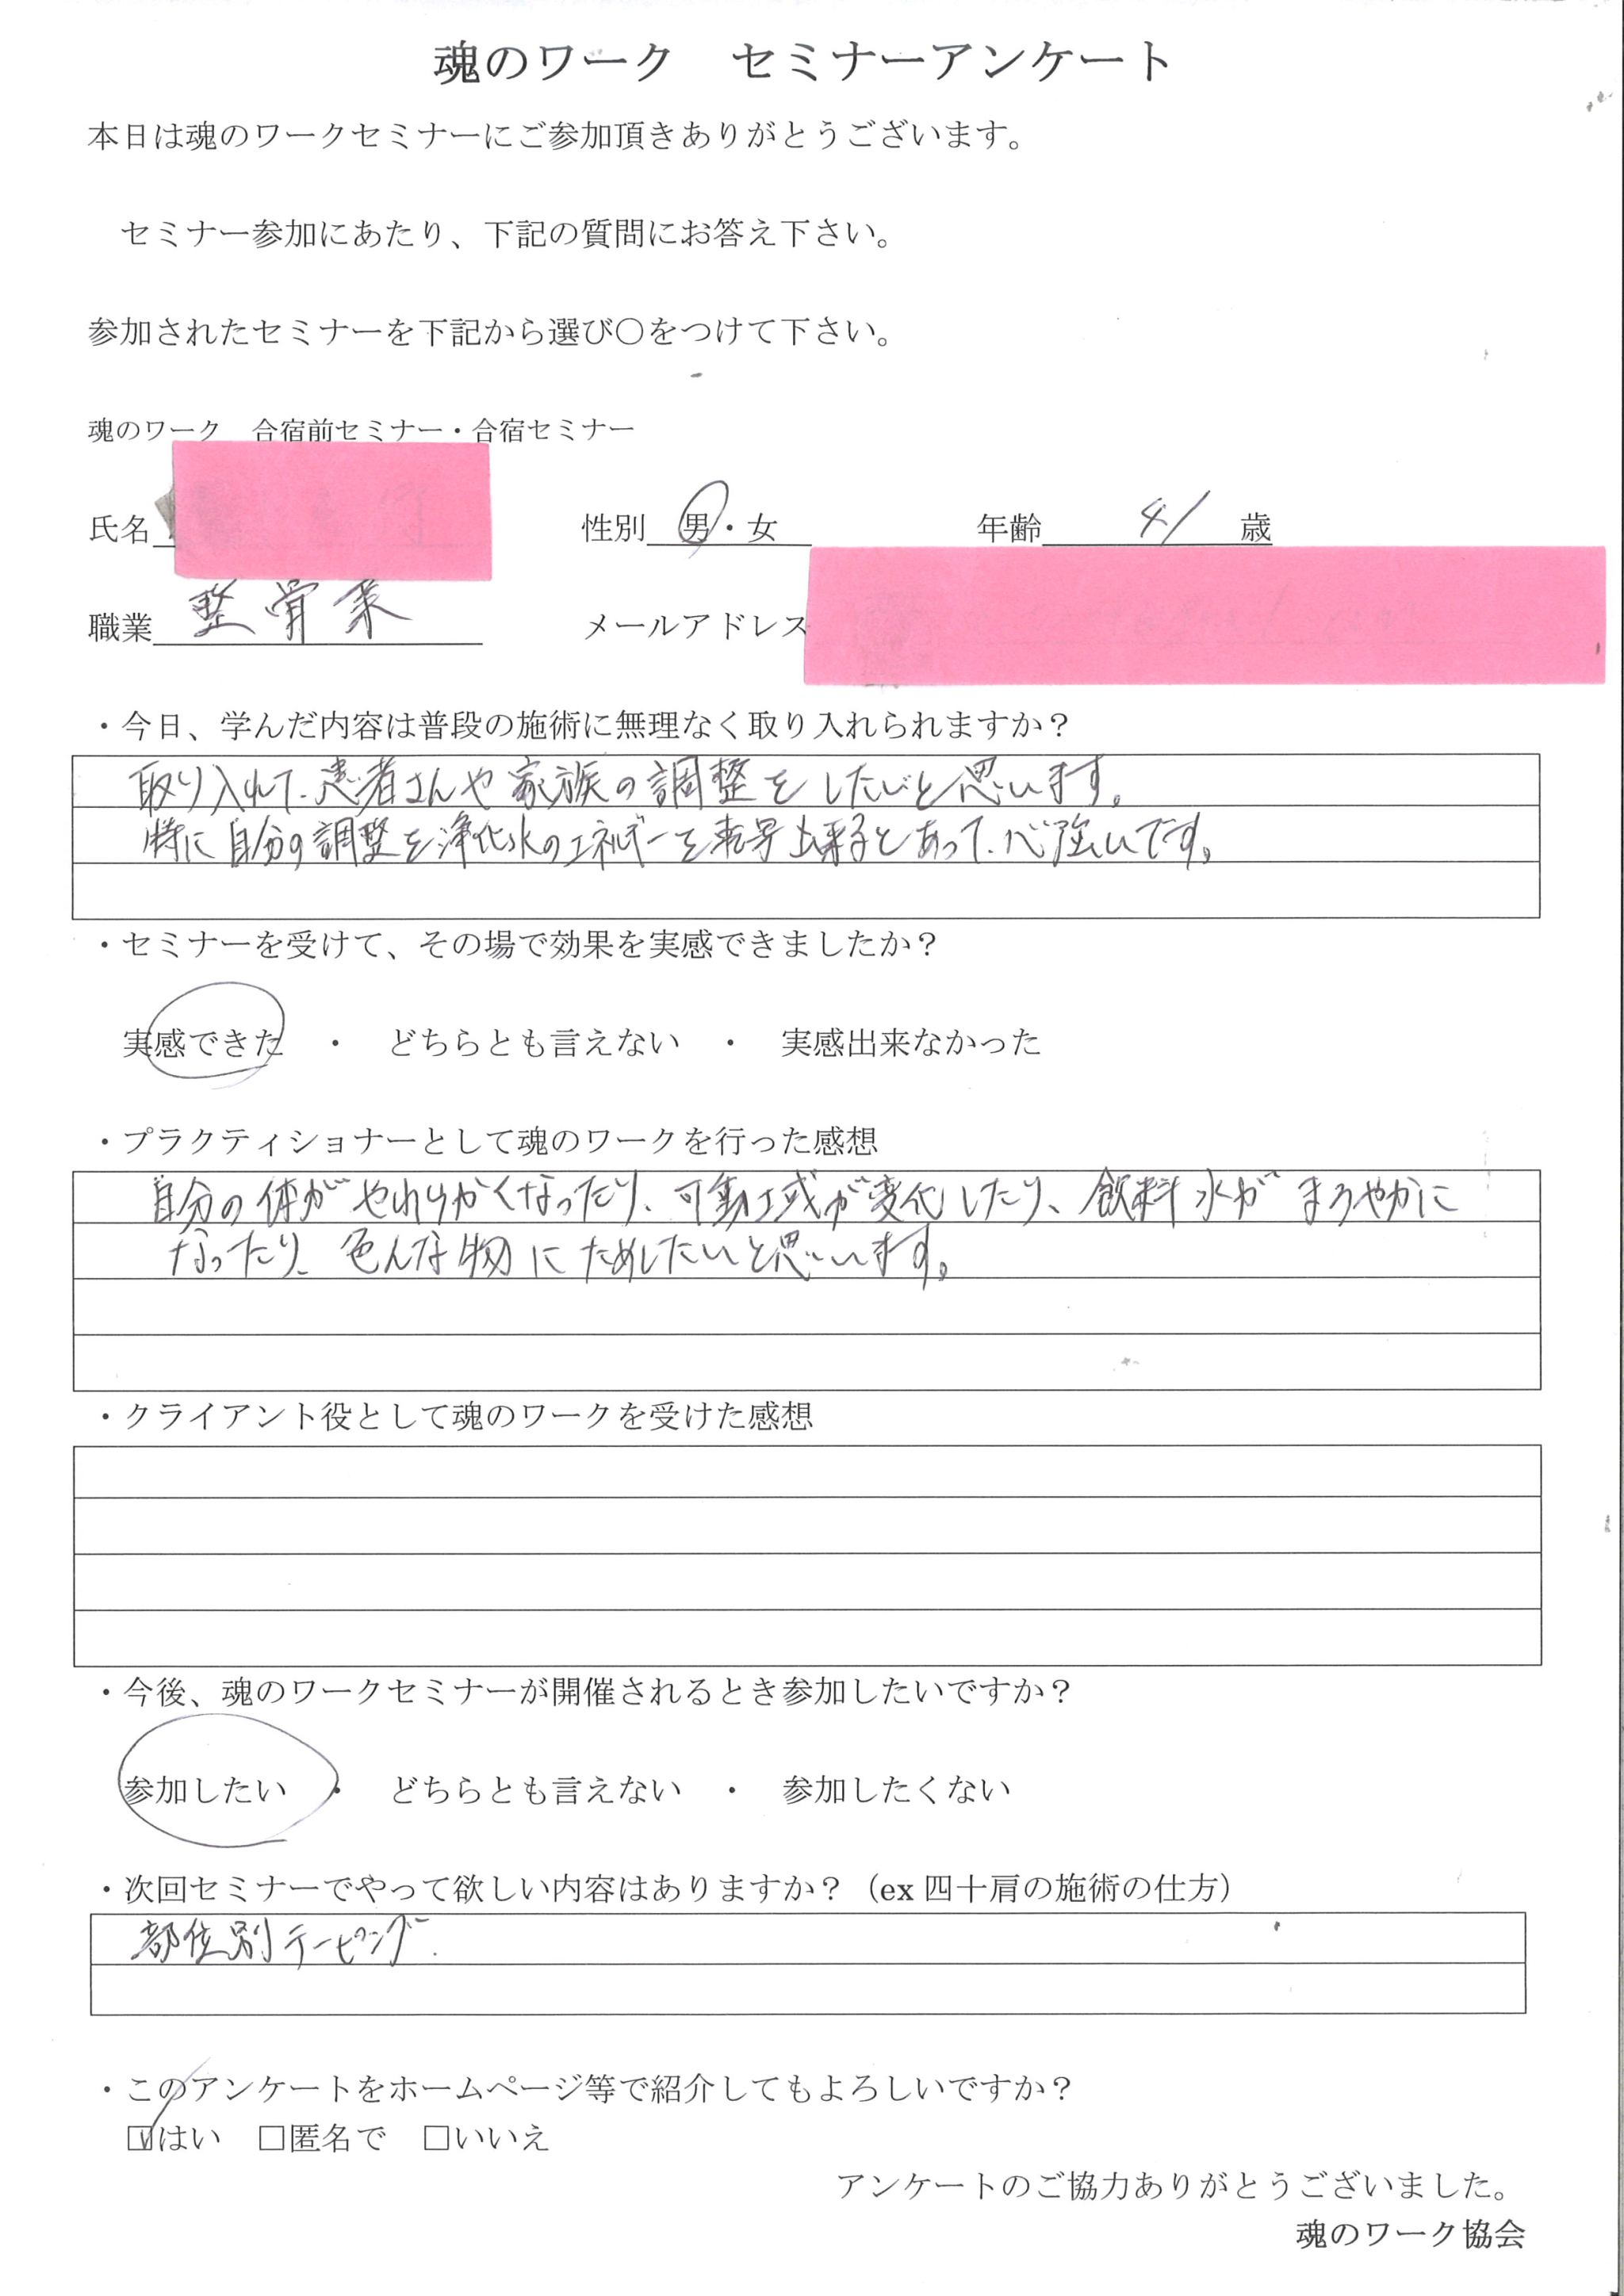 魂のワーク　セミナーアンケート
本日は魂のワークセミナーにご参加頂きありがとうございます。
セミナー参加にあたり、下記の質問にお答え下さい。
参加されたセミナーを下記から選び〇をつけて下さい。
魂のワーク　合宿前セミナー・合宿セミナー
氏名　性別　男・女　年齢　41　歳
職業　整骨業　メールアドレス
・今日、学んだ内容は普段の施術に無理なく取り入れられますか？
取り入れて、患者さんや家族の調整をしたいと思います。
特に自分の調整を浄化水のエネルギーを転写出来るとあって、心強いです。
・セミナーを受けて、その場で効果を実感できましたか？
実感できた　・　どちらとも言えない　・　実感出来なかった
・プラクティショナーとして魂のワークを行った感想
自分の体がやわらかくなったり、可動域が変化したり、飲料水がまろやかに
なったり、色んな物にためしたいと思います。
・クライアント役として魂のワークを受けた感想
・今後、魂のワークセミナーが開催されるとき参加したいですか？
参加したい　・　どちらとも言えない　・　参加したくない
・次回セミナーでやって欲しい内容はありますか？（ex 四十肩の施術の仕方）
部位別テーピング.
・このアンケートをホームページ等で紹介してもよろしいですか？
☑はい　□匿名で　□いいえ
アンケートのご協力ありがとうございました。
魂のワーク協会